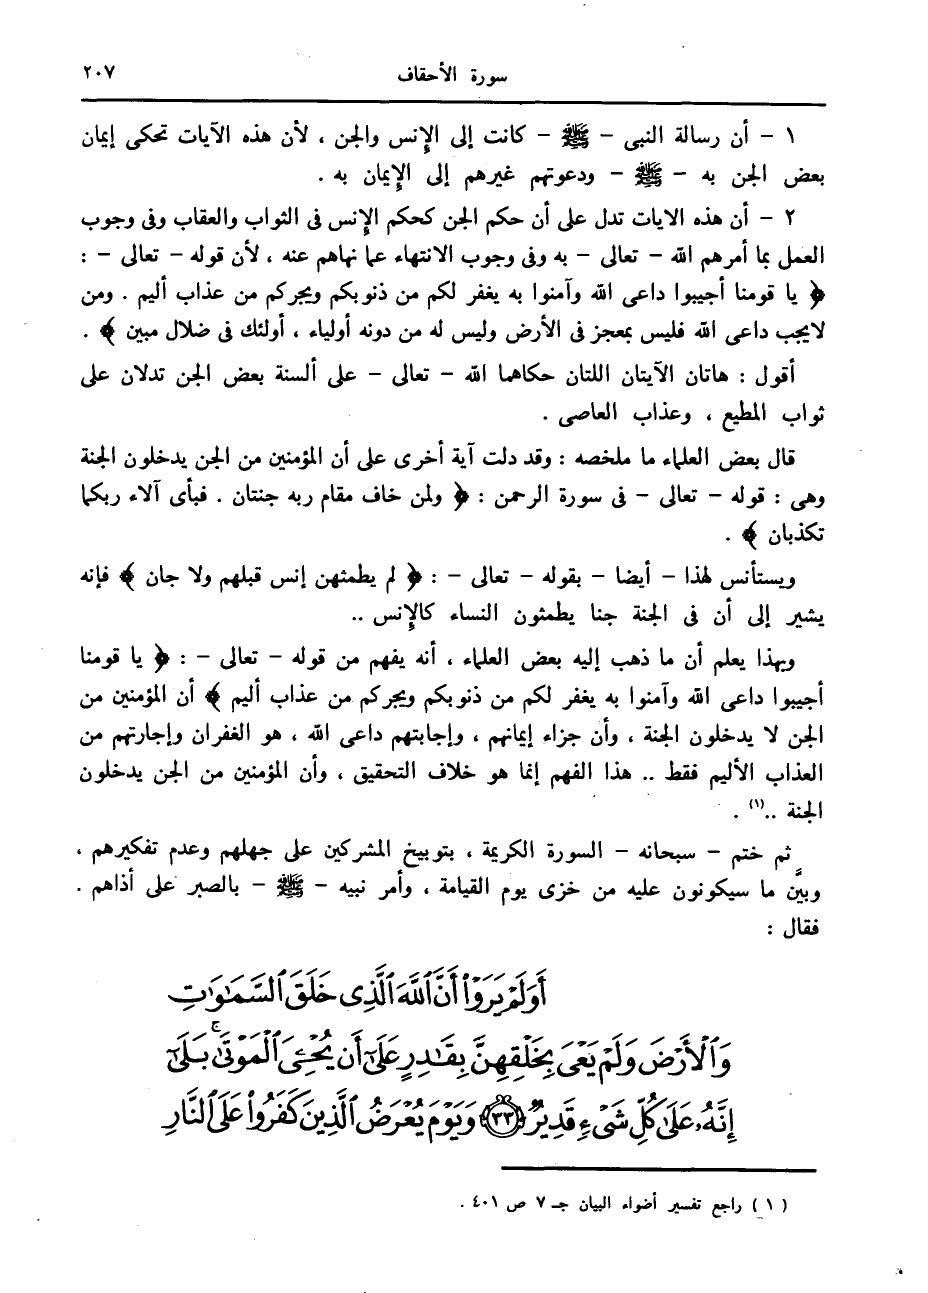 سورة الأحقاف ٢٠٧
١ - أن رسالة النبى - ﷺ - كانت إلى الإنس والجن ، لأن هذه الآيات تحكى إيمان
بعض الجن به - ﷺ - ودعوتهم غيرهم إلى الإيمان به .
٢ - أن هذه الايات تدل على أن حكم الجن كحكم الإنس فى الثواب والعقاب وفى وجوب
العمل بما أمرهم الله - تعالى - به وفى وجوب الانتهاء عما نهاهم عنه ، لأن قوله - تعالى - :
﴿ يا قومنا أجيبوا داعى الله وآمنوا به يغفر لكم من ذنوبكم ويجركم من عذاب أليم . ومن
لايجب داعى الله فليس بمعجز فى الأرض وليس له من دونه أولياء ، أولئك فى ضلال مبين ﴾ .
أقول : هاتان الآيتان اللتان حكاهما الله - تعالى - على ألسنة بعض الجن تدلان على
ثواب المطيع ، وعذاب العاصى .
قال بعض العلماء ما ملخصه : وقد دلت آية أخرى على أن المؤمنين من الجن يدخلون الجنة
وهى : قوله - تعالى - فى سورة الرحمن : ﴿ ولمن خاف مقام ربه جنتان . فبأى آلاء ربكما
تكذبان ﴾ .
ويستأنس لهذا - أيضا - بقوله - تعالى - : ﴿ لم يطمثهن إنس قبلهم ولا جان ﴾ فإنه
يشير إلى أن فى الجنة جنا يطمثون النساء كالإنس ..
وبهذا يعلم أن ما ذهب إليه بعض العلماء ، أنه يفهم من قوله - تعالى - : ﴿ يا قومنا
أجيبوا داعى الله وآمنوا به يغفر لكم من ذنوبكم ويجركم من عذاب أليم ﴾ أن المؤمنين من
الجن لا يدخلون الجنة ، وأن جزاء إيمانهم ، وإجابتهم داعى الله ، هو الغفران وإجارتهم من
العذاب الأليم فقط .. هذا الفهم إنما هو خلاف التحقيق ، وأن المؤمنين من الجن يدخلون
الجنة ..(١) .
ثم ختم - سبحانه - السورة الكريمة ، بتوبيخ المشركين على جهلهم وعدم تفكيرهم ،
وبيَّن ما سيكونون عليه من خزى يوم القيامة ، وأمر نبيه - ﷺ - بالصبر على أذاهم .
فقال :
أَوَلَمْ يَرَوْا۟ أَنَّ ٱللَّهَ ٱلَّذِى خَلَقَ ٱلسَّمَٰوَٰتِ
وَٱلْأَرْضَ وَلَمْ يَعْىَ بِخَلْقِهِنَّ بِقَٰدِرٍ عَلَىٰٓ أَن يُحْۦِىَ ٱلْمَوْتَىٰ ۚ بَلَىٰٓ
إِنَّهُۥ عَلَىٰ كُلِّ شَىْءٍ قَدِيرٌ ﴿٣٣﴾ وَيَوْمَ يُعْرَضُ ٱلَّذِينَ كَفَرُوا۟ عَلَى ٱلنَّارِ
( ١ ) راجع تفسير أضواء البيان جـ ٧ ص ٤٠١ .